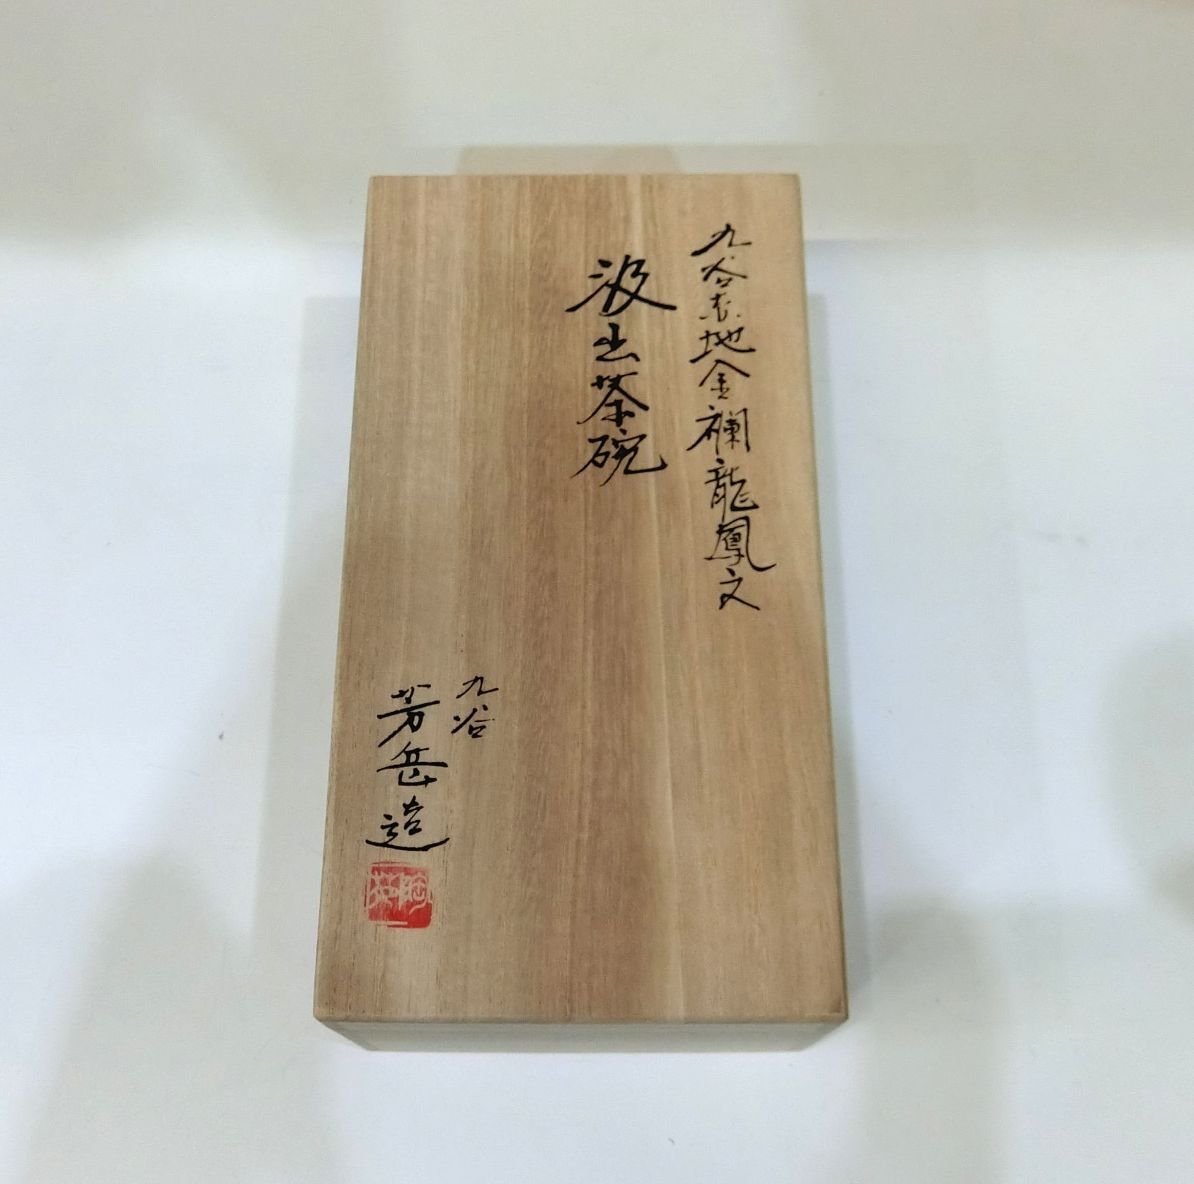 九谷赤地金襴龍鳳文
汲出茶碗
九谷
芳岳造
陶英